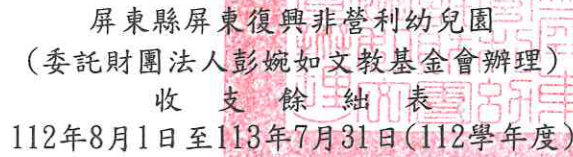 屏東縣屏東復興非營利幼兒園
(委託財團法人彭婉如文教基金會辦理)
收支餘絀表
112年8月1日至113年7月31日(112學年度)